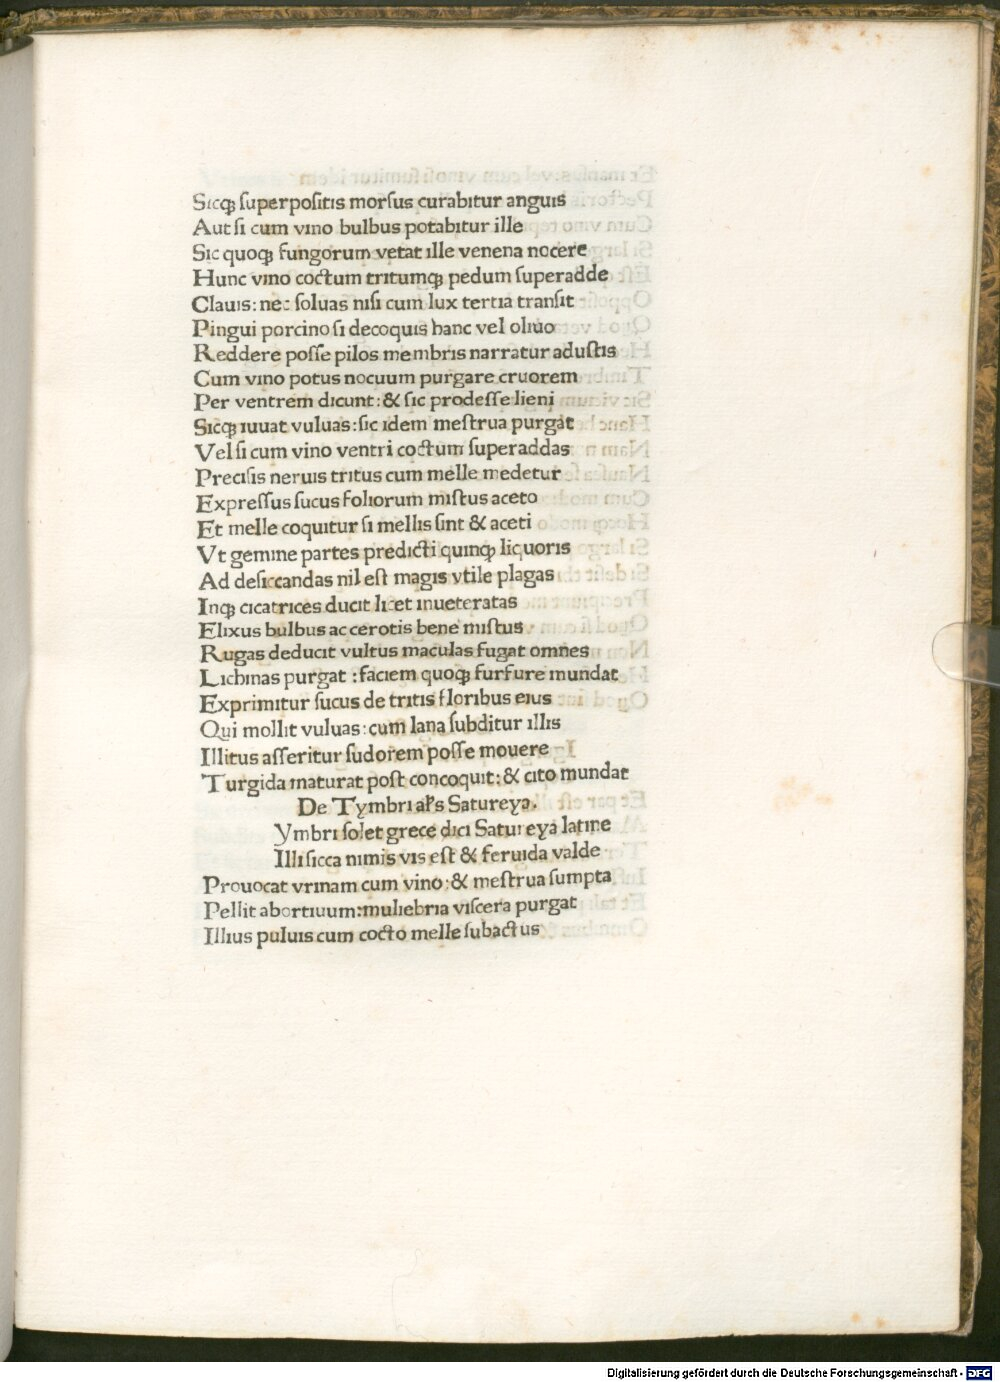 Sicqꝫ ſuperpoſitis morſus curabitur anguis
Aut ſi cum vino bulbus potabitur ille
Sic quoqꝫ fungorum vetat ille venena nocere
Hunc vino coctum tritumqꝫ pedum ſuperadde
Clauis: nec ſoluas niſi cum lux tertia tranſit
Pingui porcino ſi decoquis hanc vel oliuo
Reddere poſſe pilos membris narratur aduſtis
Cum vino potus nocuum purgare cruorem
Per ventrem dicunt: & ſic prodeſſe lieni
Sicqꝫ iuuat vuluas: ſic idem meſtrua purgat
Vel ſi cum vino ventri coctum ſuperaddas
Preciſis neruis tritus cum melle medetur
Expreſſus ſucus foliorum miſtus aceto
Et melle coquitur ſi mellis ſint & aceti
Vt gemine partes predicti quinqꝫ liquoris
Ad deſiccandas nil eſt magis vtile plagas
Inqꝫ cicatrices ducit licet inueteratas
Elixus bulbus ac cerotis bene miſtus
Rugas deducit vultus maculas fugat omnes
Lichinas purgat : faciem quoqꝫ furfure mundat
Exprimitur ſucus de tritis floribus eius
Qui mollit vuluas: cum lana ſubditur illis
Illitus aſſeritur ſudorem poſſe mouere
Turgida maturat poſt concoquit: & cito mundat
De Tymbri al's Satureya.
Ymbri ſolet grece dici Satureya latine
Illi ſicca nimis vis eſt & feruida valde
Prouocat vrinam cum vino: & meſtrua ſumpta
Pellit abortiuum: muliebria viſcera purgat
Illius puluis cum cocto melle ſubactus
Digitalisierung gefördert durch die Deutsche Forschungsgemeinschaft - DFG